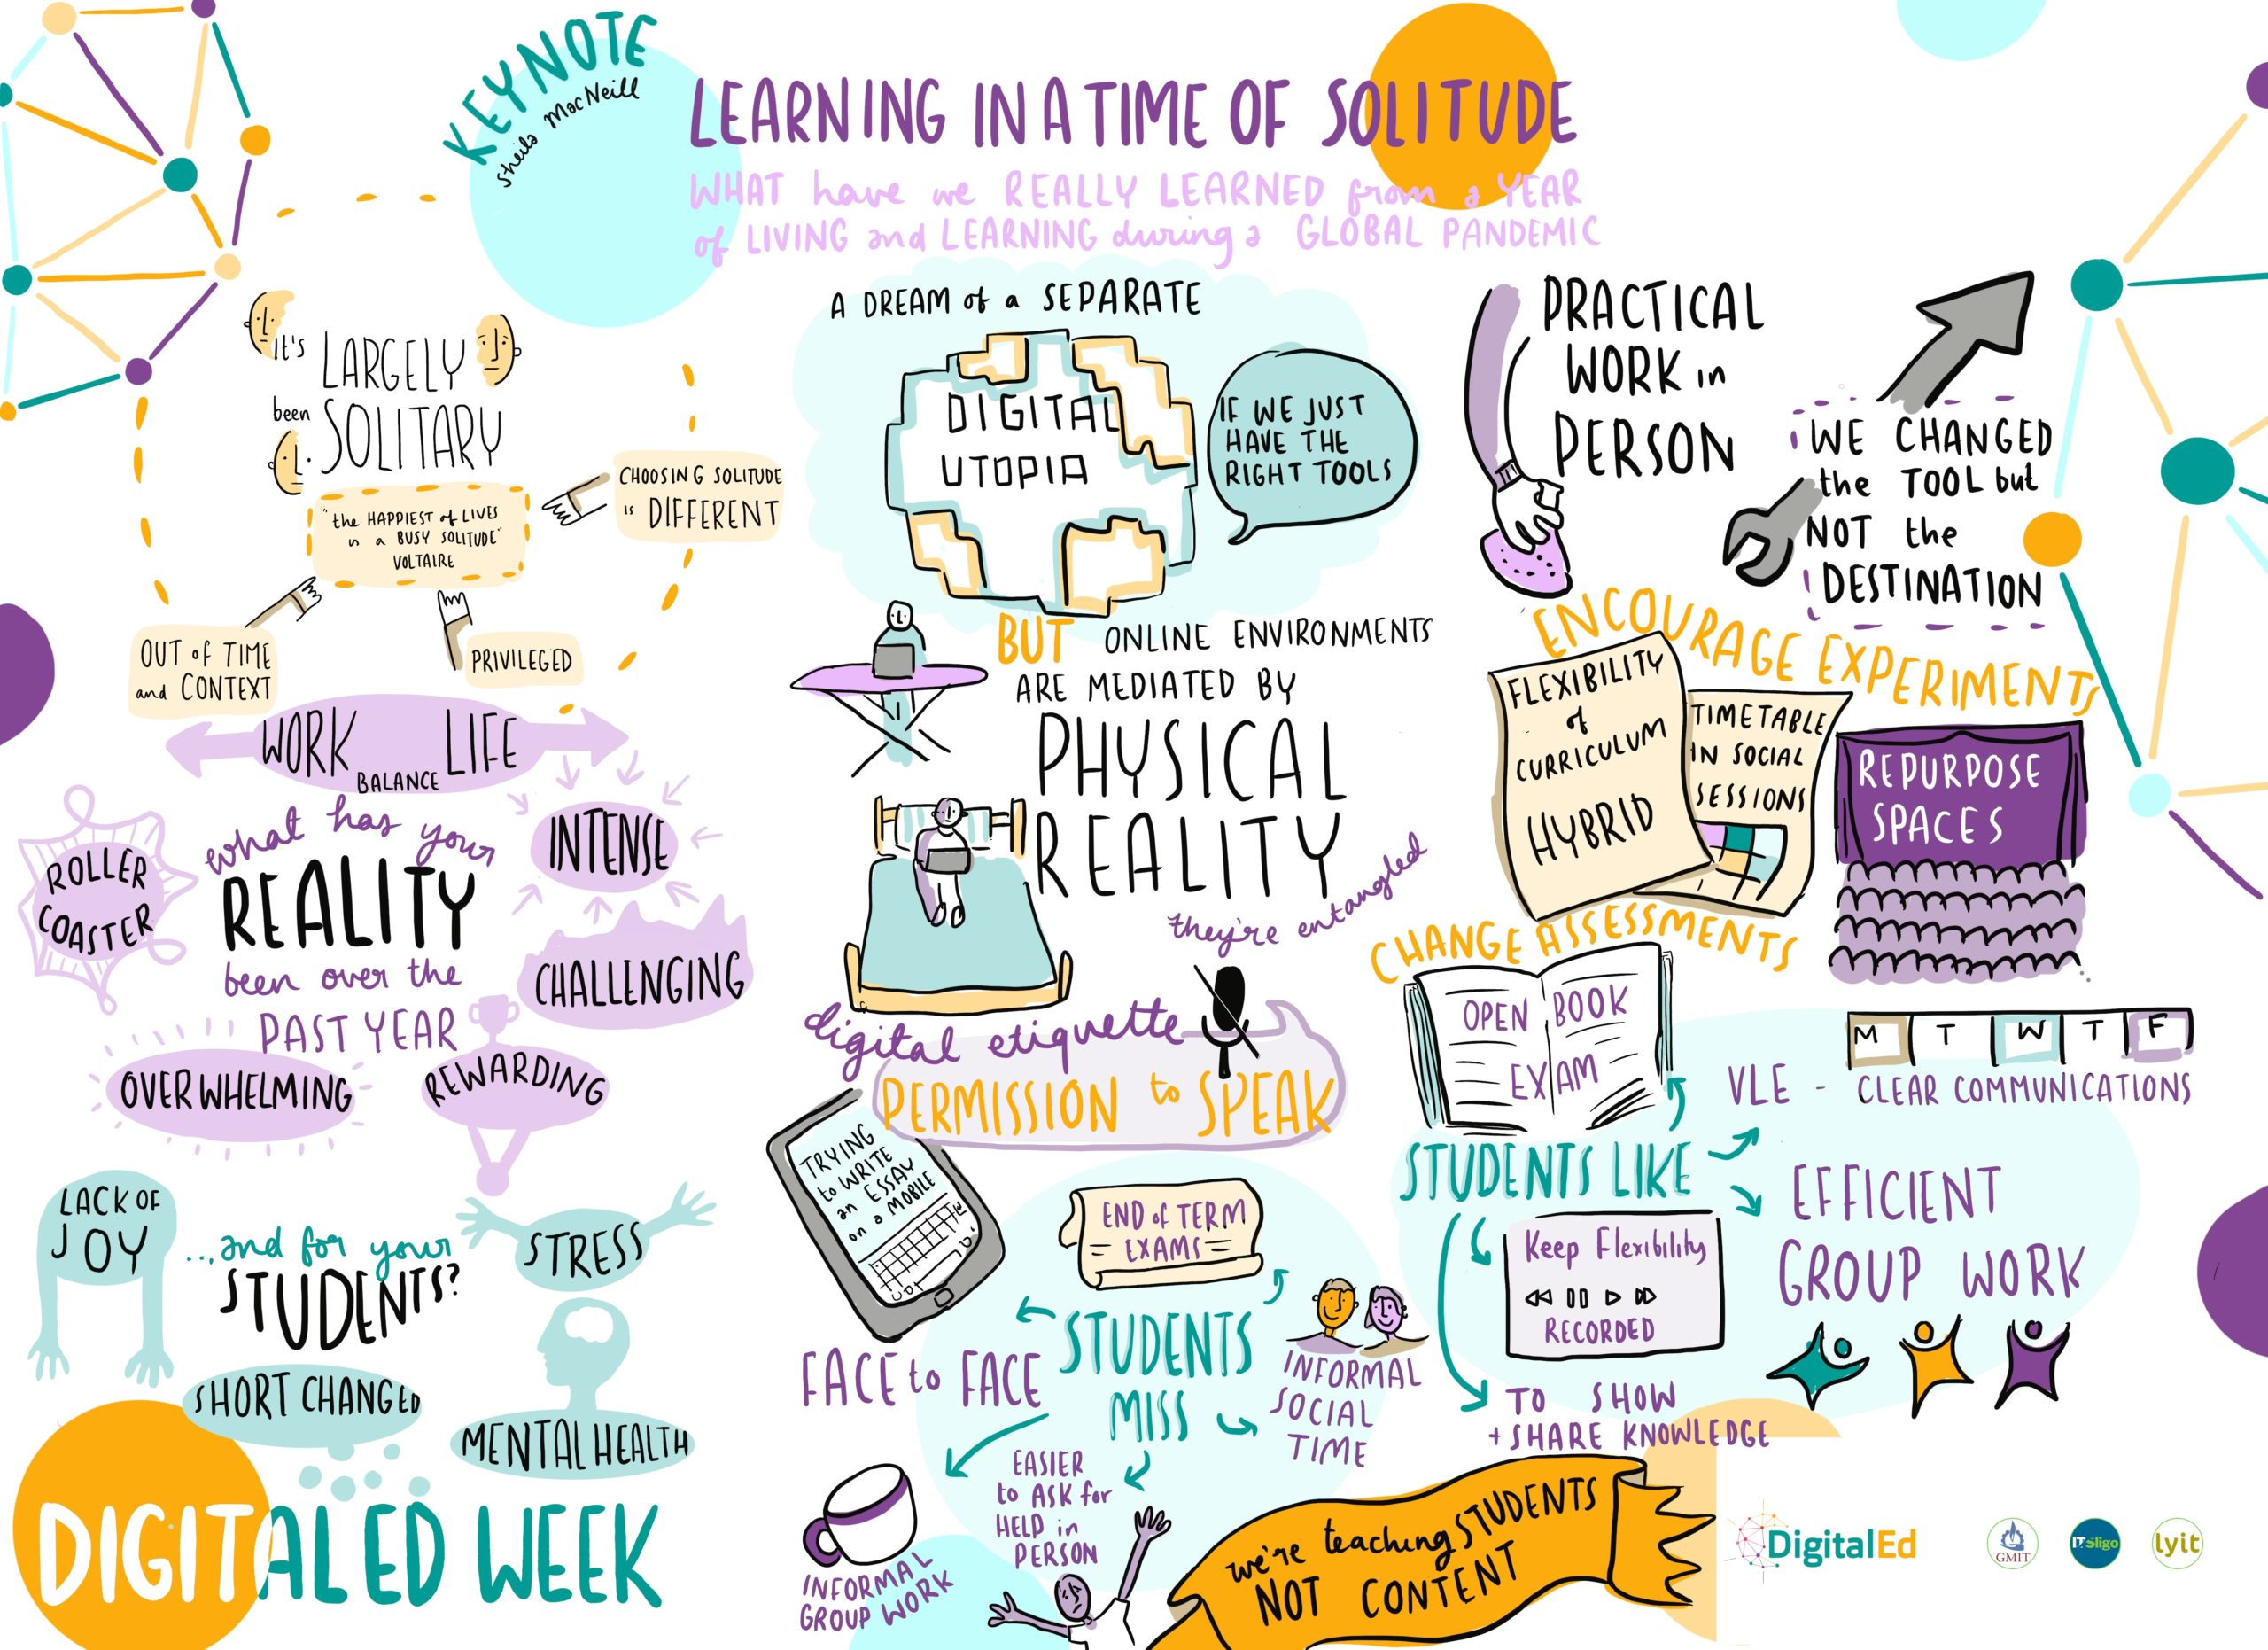 KEYNOTE
Sheila MacNeill
LEARNING IN A TIME OF SOLITUDE
WHAT have we REALLY LEARNED from a YEAR
of LIVING and LEARNING during a GLOBAL PANDEMIC
it's LARGELY
been SOLITARY
"the HAPPIEST of LIVES
is a BUSY SOLITUDE"
VOLTAIRE
CHOOSING SOLITUDE
is DIFFERENT
OUT of TIME
and CONTEXT
PRIVILEGED
WORK LIFE
BALANCE
what has your
REALITY
been over the
PAST YEAR
ROLLER
COASTER
INTENSE
CHALLENGING
OVERWHELMING
REWARDING
LACK OF
JOY
...and for your
STUDENTS?
STRESS
SHORT CHANGED
MENTAL HEALTH
DIGITALED WEEK
A DREAM of a SEPARATE
DIGITAL
UTOPIA
IF WE JUST
HAVE THE
RIGHT TOOLS
BUT ONLINE ENVIRONMENTS
ARE MEDIATED BY
PHYSICAL
REALITY
they're entangled
digital etiquette
PERMISSION to SPEAK
TRYING
to WRITE
an ESSAY
on a MOBILE
END of TERM
EXAMS
STUDENTS
MISS
FACE to FACE
INFORMAL
SOCIAL
TIME
EASIER
to ASK for
HELP in
PERSON
INFORMAL
GROUP WORK
PRACTICAL
WORK in
PERSON
WE CHANGED
the TOOL but
NOT the
DESTINATION
ENCOURAGE EXPERIMENTS
FLEXIBILITY
of
CURRICULUM
HYBRID
TIMETABLE
IN SOCIAL
SESSIONS
REPURPOSE
SPACES
CHANGE ASSESSMENTS
OPEN BOOK
EXAM
M T W T F
VLE - CLEAR COMMUNICATIONS
STUDENTS LIKE
EFFICIENT
GROUP WORK
Keep Flexibility
RECORDED
TO SHOW
+ SHARE KNOWLEDGE
we're teaching STUDENTS
NOT CONTENT
DigitalEd
GMIT
IT Sligo
lyit